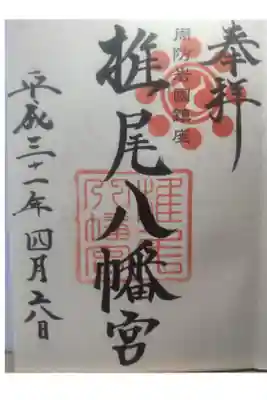 奉拝
周防岩國鎮座
椎尾八幡宮
椎尾
八幡宮
平成三十一年四月六日